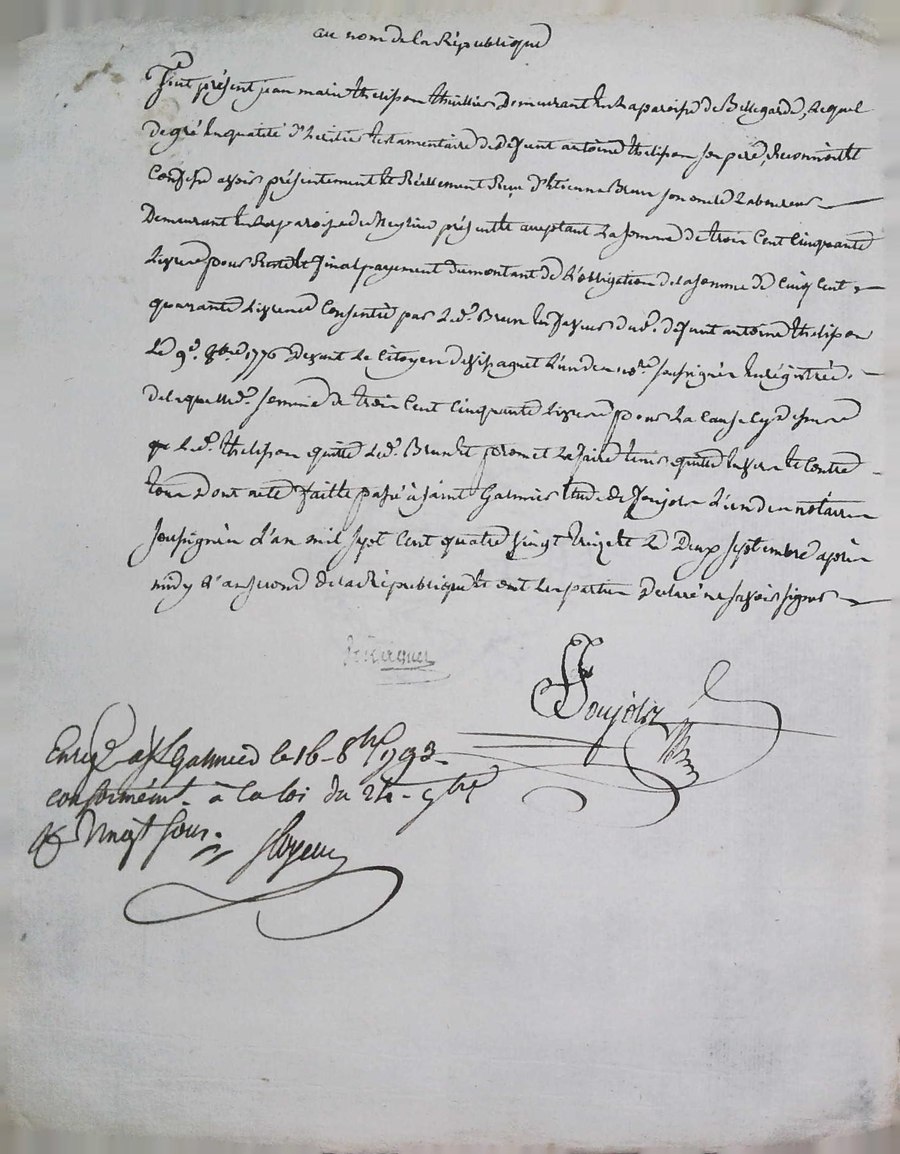 au nom de la République
fut présent jean marie thelisson thuillier demeurant en la paroisse de Bellegarde, lequel
de gré en qualité d'heritier testamentaire de defunt antoine thelisson son pere, Reconnoit et
Confesse avoir présentement et Réellement Reçu d'Etienne Brun son oncle Laboureur
Demeurant en la paroisse de présent et acceptant La somme de trois Cent Cinquante
Livres pour Reste et final payement du montant de L'obligation de la somme de Cinq Cent
quarante Livres Consentie par Led. Brun en faveur dud. defunt antoine thelisson
Le 9e. 1776 devant Le Citoyen l'un des nores. soussignés Enregistrée.
de laquelle d. somme de trois Cent Cinquante Livres pour La Cause Cy dessus
Led. thelisson quitte Led. Brun et promet Le faire tenir quitte Envers et Contre
tous dont acte fait et passé à saint Galmier Etude de Poujolz L'un des notaires
soussignés L'an mil sept Cent quatre vingt treize et Le Deux septembre après
midy L'an second de la République et ont les parties Declaré ne savoir signer
Poujolz
Enregé à St Galmier le 16 8bre 1793
conformémt. à la loi du 24 9bre
R vingt sous.